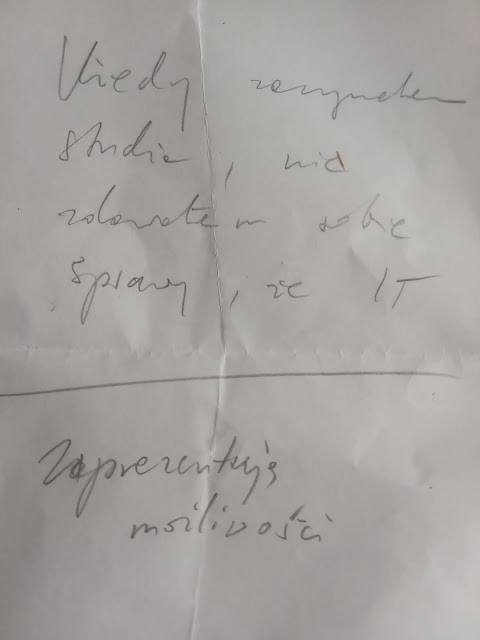 Kiedy zaczynałem
studia, nie
zdawałem sobie
sprawy, że IT
Zaprezentuję
możliwości